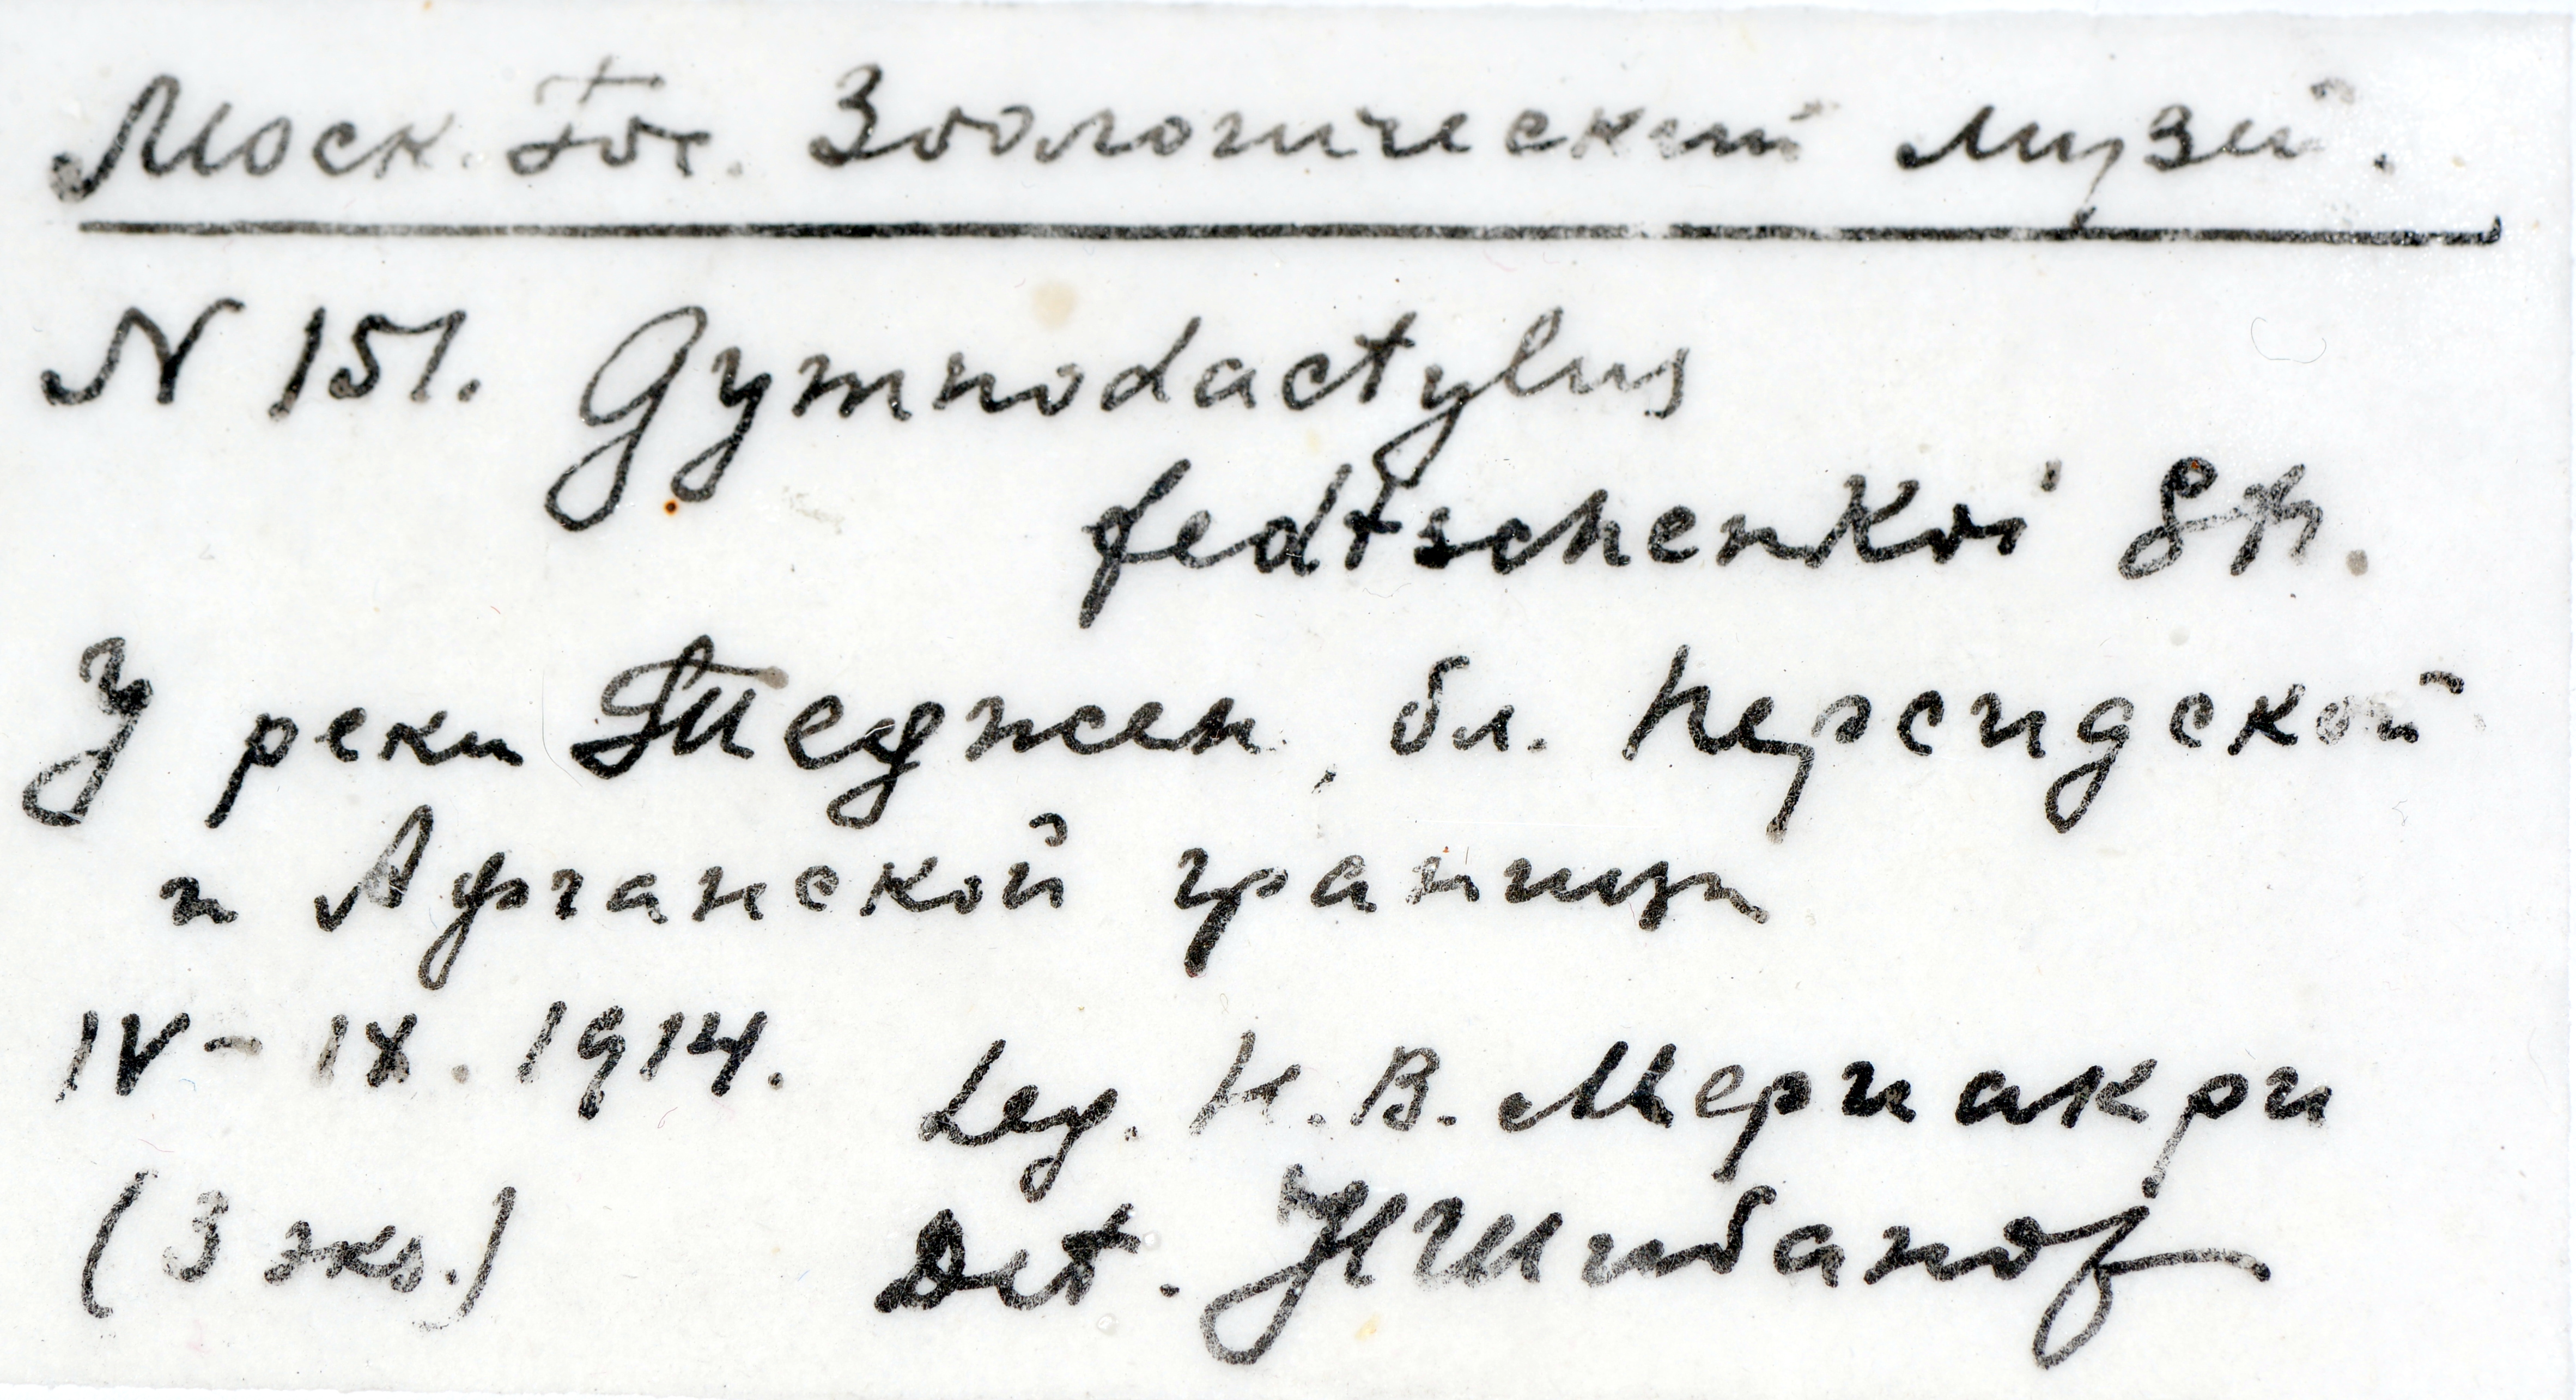 Моск. Гос. Зоологический музей.
N 151. Gymnodactylus
fedtschenkoi Str.
У реки Теджен, бл. Персидской
и Афганской границы
IV - IX. 1914.
Leg. Н. В. Мериакри
(3 экз.)
Det. Н Шибанов